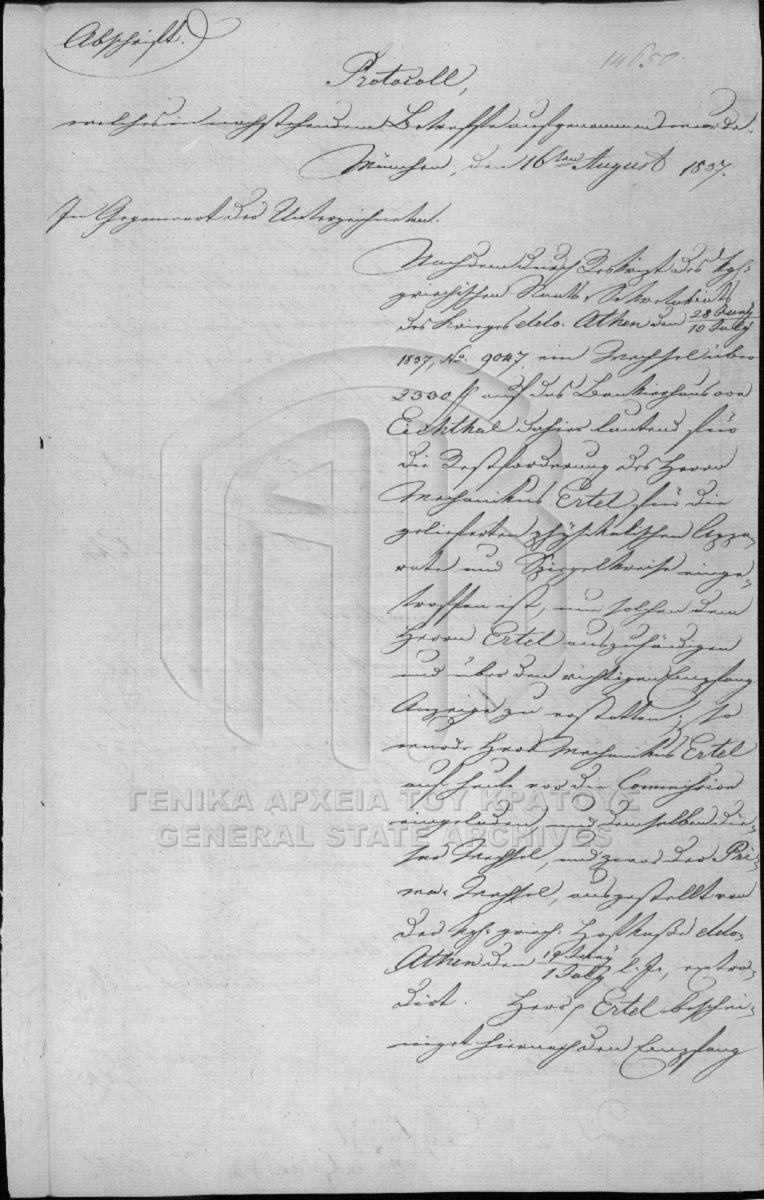 Abschrift.
14650.
Protocoll,
welches in nachstehendem Betreffe aufgenommen wurde.
München, den 16ten August 1837.
In Gegenwart der Unterzeichneten.
Nachdem durch Reskript des kgl.
griechischen Staats-Sekretariats
des Krieges ddo. Athen den 28 Juny
10 July
1837, No. 9047, ein Wechsel über
2330 f auf das Bankierhaus von
Eichthal dahier lautend für
die Restforderung des Herrn
Mechanikus Ertel für die
gelieferten physikalischen Appa-
rate und Spiegelkreise einge-
troffen ist, um solchen dem
Herrn Ertel auszuhändigen
und über den richtigen Empfang
Anzeige zu erstatten, so
wurde Herr Mechanikus Ertel
auf heute vor die Commission
eingeladen, und demselben die-
ser Wechsel, und zwar der Pri-
ma-Wechsel, ausgestellt von
der kgl. griech. Hofkasse ddo.
Athen den 19 Juny
1 July l. J., extra-
dirt. Herr Ertel beschei-
niget hiernach den Empfang
ΓΕΝΙΚΑ ΑΡΧΕΙΑ ΤΟΥ ΚΡΑΤΟΥΣ
GENERAL STATE ARCHIVES